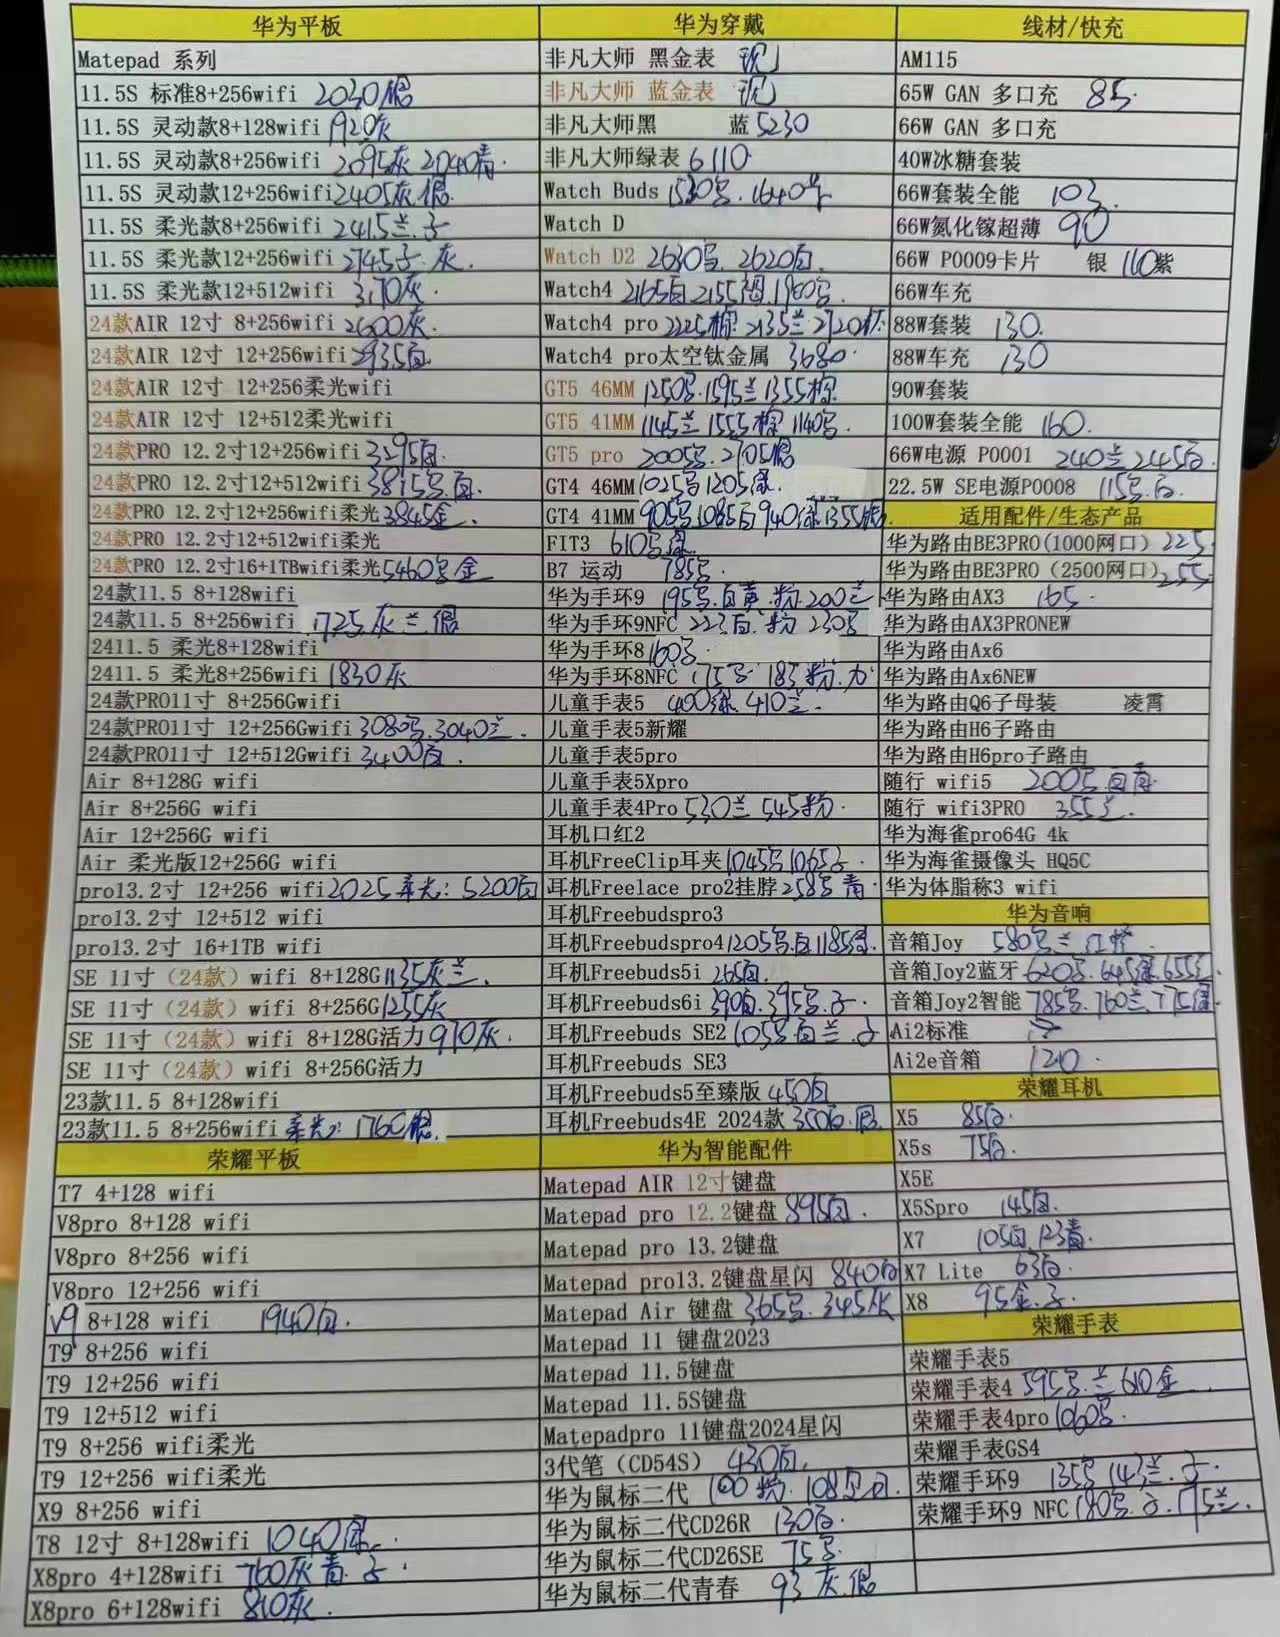 华为平板
Matepad 系列
11.5S 标准8+256wifi 2030银
11.5S 灵动款8+128wifi 1920灰
11.5S 灵动款8+256wifi 2095灰 2040青.
11.5S 灵动款12+256wifi 2405灰.银
11.5S 柔光款8+256wifi 2415兰.子
11.5S 柔光款12+256wifi 2745子.灰.
11.5S 柔光款12+512wifi 3170灰.
24款AIR 12寸 8+256wifi 2600灰
24款AIR 12寸 12+256wifi 2935白
24款AIR 12寸 12+256柔光wifi
24款AIR 12寸 12+512柔光wifi
24款PRO 12.2寸12+256wifi 3295白.
24款PRO 12.2寸12+512wifi 3815.白.
24款PRO 12.2寸12+256wifi柔光 3845金.
24款PRO 12.2寸12+512wifi柔光
24款PRO 12.2寸16+1TBwifi柔光 5460 金
24款11.5 8+128wifi
24款11.5 8+256wifi 1725灰兰银
2411.5 柔光8+128wifi
2411.5 柔光8+256wifi 1830灰
24款PRO11寸 8+256Gwifi
24款PRO11寸 12+256Gwifi 3080.3040兰.
24款PRO11寸 12+512Gwifi 3400白.
Air 8+128G wifi
Air 8+256G wifi
Air 12+256G wifi
Air 柔光版12+256G wifi
pro13.2寸 12+256 wifi 2025柔光:5200白
pro13.2寸 12+512 wifi
pro13.2寸 16+1TB wifi
SE 11寸（24款）wifi 8+128G 1135灰兰.
SE 11寸（24款）wifi 8+256G 1255灰
SE 11寸（24款）wifi 8+128G活力 970灰.
SE 11寸（24款）wifi 8+256G活力
23款11.5 8+128wifi
23款11.5 8+256wifi 柔光:1760银.
荣耀平板
T7 4+128 wifi
V8pro 8+128 wifi
V8pro 8+256 wifi
V8pro 12+256 wifi
V9 8+128 wifi 1940白.
T9 8+256 wifi
T9 12+256 wifi
T9 12+512 wifi
T9 8+256 wifi柔光
T9 12+256 wifi柔光
X9 8+256 wifi
T8 12寸 8+128wifi 1040绿.
X8pro 4+128wifi 760灰青.子.
X8pro 6+128wifi 810灰.
华为穿戴
非凡大师 黑金表 现
非凡大师 蓝金表 现
非凡大师黑 蓝5230
非凡大师绿表 6110
Watch Buds 1530.1640
Watch D
Watch D2 2630.2620白.
Watch4 2165白2155.1960
Watch4 pro 2225棕2135兰.2720
Watch4 pro太空钛金属 3680.
GT5 46MM 1250.1595兰1355棕
GT5 41MM 1145兰1555棕1140
GT5 pro 2005.2705银
GT4 46MM 1025 1205绿.
GT4 41MM 905 1085白940绿1355银
FIT3 610 绿
B7 运动 785
华为手环9 195.白黄.粉.200兰
华为手环9NFC 223白.粉 230
华为手环8 160
华为手环8NFC 175 185粉.
儿童手表5 400绿.410兰.
儿童手表5新耀
儿童手表5pro
儿童手表5Xpro
儿童手表4Pro 530兰545粉.
耳机口红2
耳机FreeClip耳夹 1045 1065子.
耳机Freelace pro2挂脖 258 青.
耳机Freebudspro3
耳机Freebudspro4 1205.白1185绿.
耳机Freebuds5i 265白.
耳机Freebuds6i 390白.395.子.
耳机Freebuds SE2 105 白兰.子
耳机Freebuds SE3
耳机Freebuds5至臻版 450白
耳机Freebuds4E 2024款 350白.银.
华为智能配件
Matepad AIR 12寸键盘
Matepad pro 12.2键盘 895白.
Matepad pro 13.2键盘
Matepad pro13.2键盘星闪 840白
Matepad Air 键盘 365.345灰
Matepad 11 键盘2023
Matepad 11.5键盘
Matepad 11.5S键盘
Matepadpro 11键盘2024星闪
3代笔（CD54S） 430白.
华为鼠标二代 100粉.108
华为鼠标二代CD26R 130白.
华为鼠标二代CD26SE 75
华为鼠标二代青春 93灰.银
线材/快充
AM115
65W GAN 多口充 85.
66W GAN 多口充
40W冰糖套装
66W套装全能 103.
66W氮化镓超薄 90
66W P0009卡片 银 110紫
66W车充
88W套装 130.
88W车充 130
90W套装
100W套装全能 160.
66W电源 P0001 240兰245白.
22.5W SE电源P0008 115.白.
适用配件/生态产品
华为路由BE3PRO(1000网口) 225
华为路由BE3PRO（2500网口） 255
华为路由AX3 165.
华为路由AX3PRONEW
华为路由Ax6
华为路由Ax6NEW
华为路由Q6子母装 凌霄
华为路由H6子路由
华为路由H6pro子路由
随行 wifi5 200 白青.
随行 wifi3PRO 355兰.
华为海雀pro64G 4k
华为海雀摄像头 HQ5C
华为体脂称3 wifi
华为音响
音箱Joy 580 兰.红.橙.
音箱Joy2蓝牙 620.645绿.655
音箱Joy2智能 785.760兰.775绿.
Ai2标准
Ai2e音箱 120.
荣耀耳机
X5 85白.
X5s 75白.
X5E
X5Spro 145白.
X7 105白.123青.
X7 Lite 63白.
X8 95金.子.
荣耀手表
荣耀手表5
荣耀手表4 595.兰610金.
荣耀手表4pro 1060.
荣耀手表GS4
荣耀手环9 135 143兰.子.
荣耀手环9 NFC 180.子.175兰.